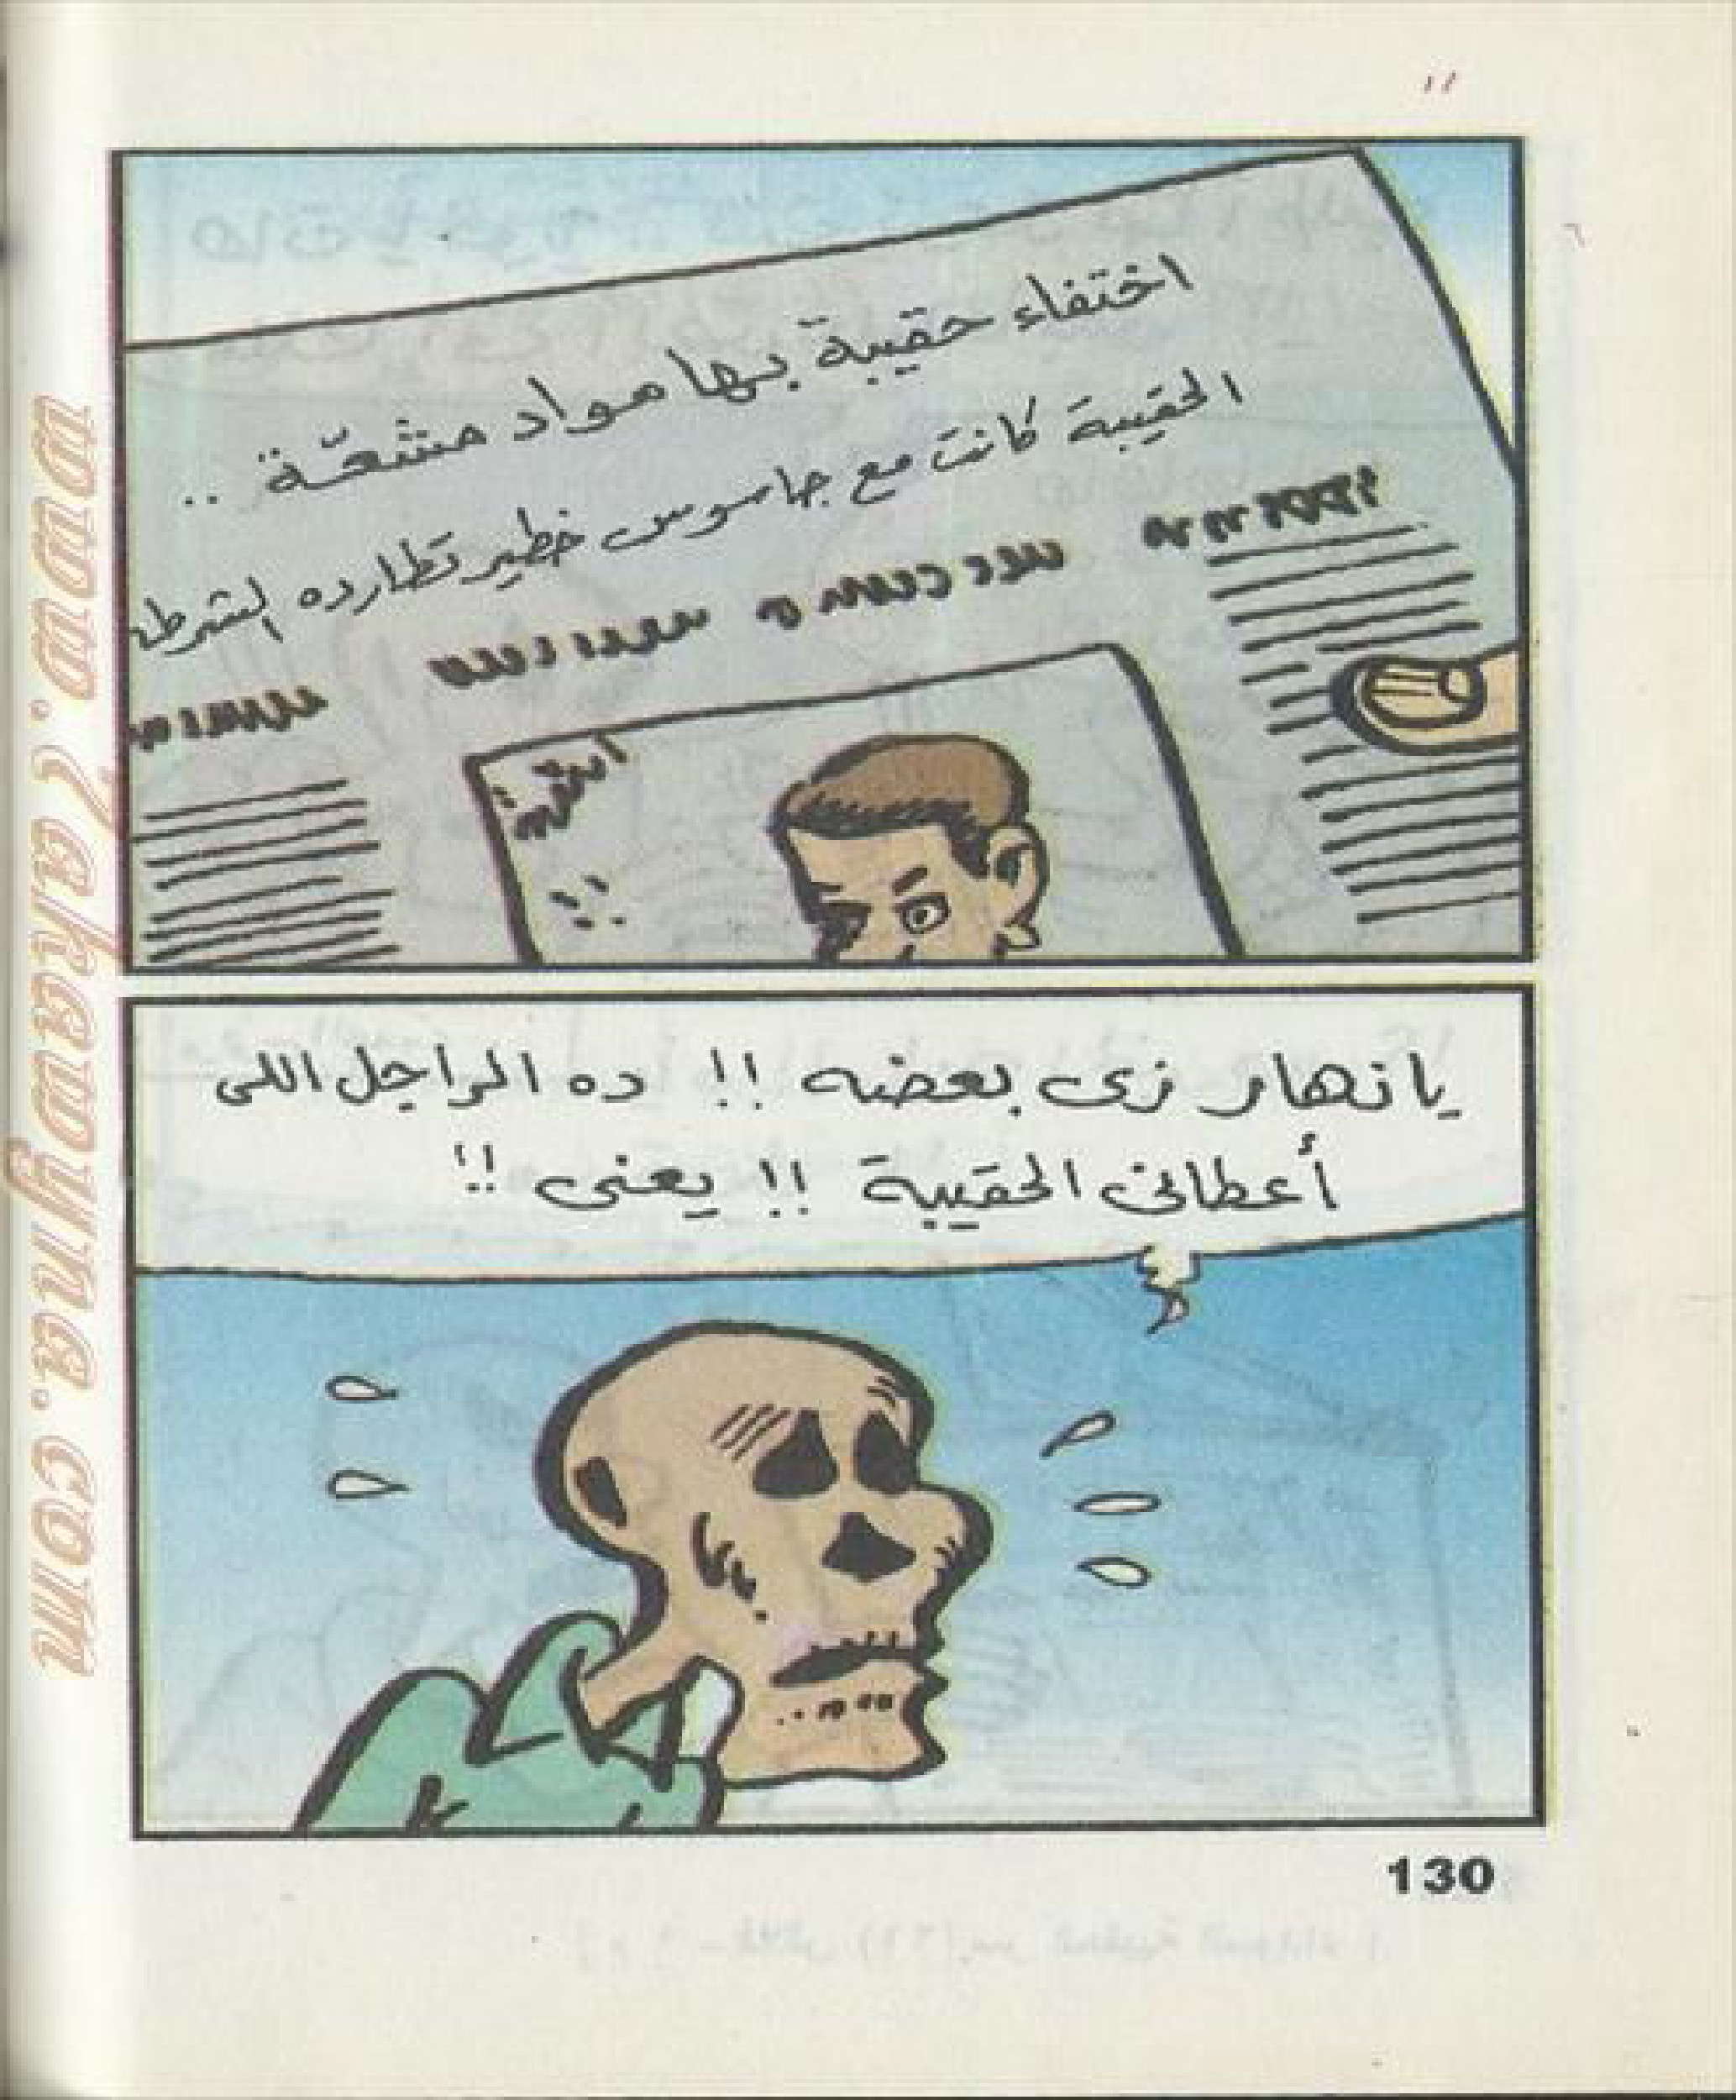 اختفاء حقيبة بها مواد مشعّة ..
الحقيبة كانت مع جاسوس خطير تطارده الشرطة
يا نهار زى بعضه !! ده الراجل اللى
أعطانى الحقيبة !! يعنى !!
130
www.fahayna.com